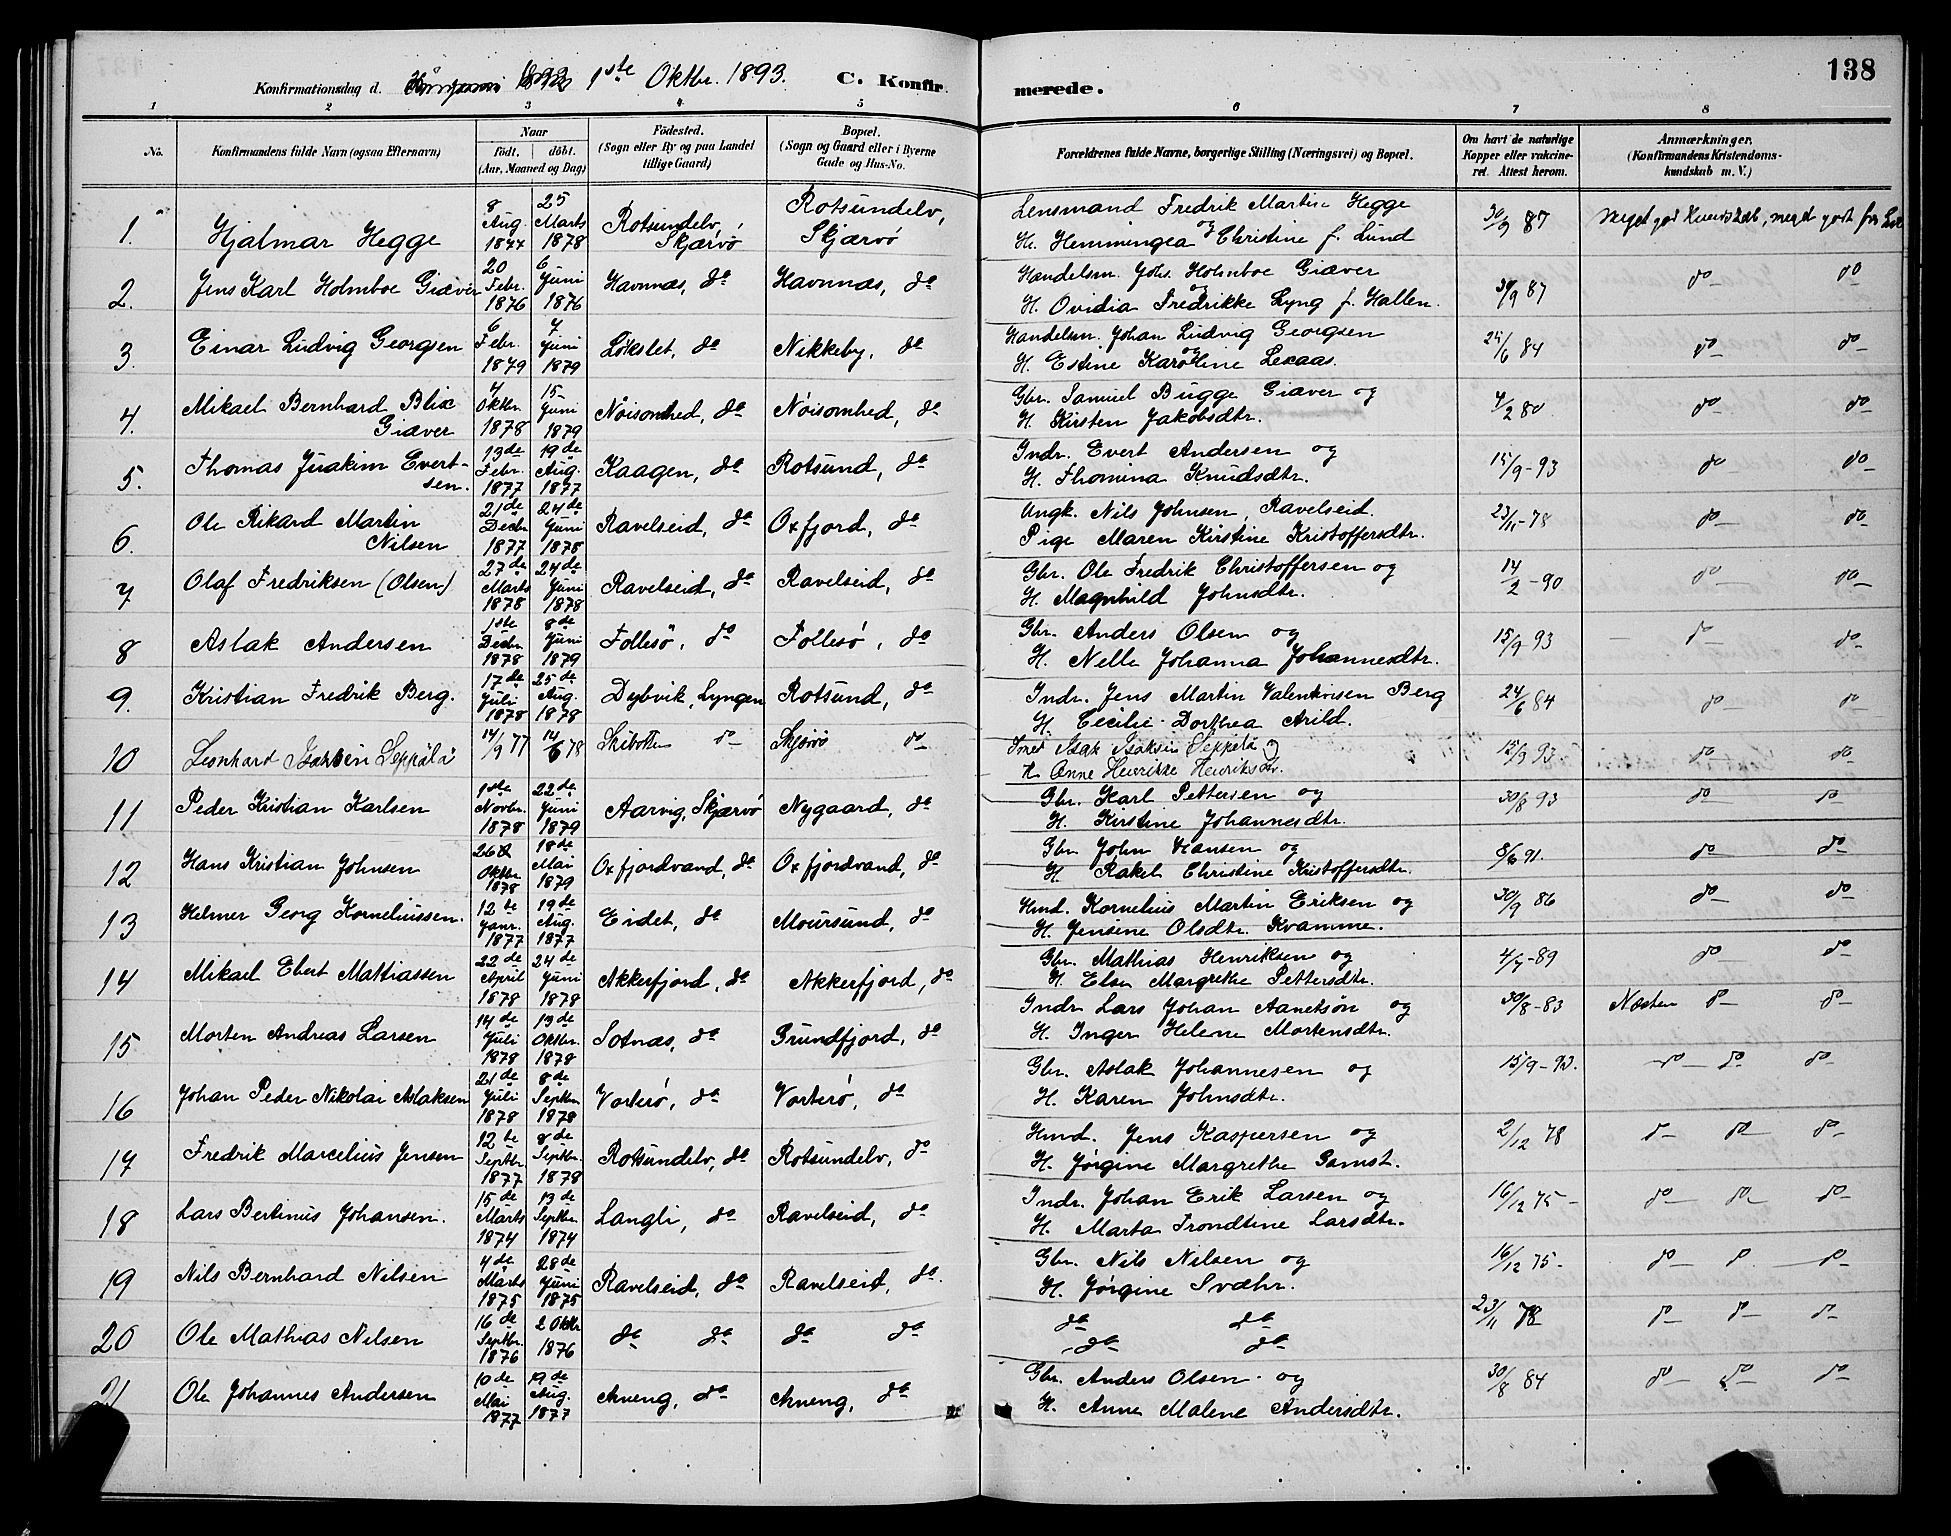 138
Konfirmationsdag d. 1ste Oktbr. 1893. C. Konfirmerede.
1 2 3 4 5 6 7 8
No. Konfirmandens fulde Navn (ogsaa Efternavn) Naar født. døbt. (Aar, Maaned og Dag) Fødested. (Sogn eller By og paa Landet tillige Gaard) Bopæl. (Sogn og Gaard eller i Byerne Gade og Hus-No. Forældrenes fulde Navne, borgerlige Stilling (Næringsvei) og Bopæl. Om havt de naturlige Kopper eller vakcineret. Attest herom. Anmærkninger, (Konfirmandens Kristendomskundskab m. V.)
1. Hjalmar Hegge 8 Aug. 1877 25 Marts 1878 Rotsundelv, Skjærvö Rotsundelv, Skjærvö Lensmand Fredrik Martin Hegge og H. Hemmingea Christine f. Lund 30/9 87 Meget god Kundskab, meget godt
2. Jens Karl Holmboe Giæver 20 Febr. 1876 6 Juni 1876 Havnnæs, do Havnnæs, do Handelsm. Johs. Holmboe Giæver og H. Ovidia Fredrikke Lyng f. Hallen. 30/9 87 do do
3. Einar Ludvig Georgsen 6 Febr. 1879 7 Juni 1879 Løkslet, do Nikkeby, do Handelsm. Johan Ludvig Georgsen og H. Estine Karoline Lexaas. 25/6 84 do do
4. Mikael Bernhard Blix Giæver 4 Oktbr. 1878 15 Juni 1879 Nöisomhed, do Nöisomhed, do Gbr. Samuel Bugge Giæver og H. Kirsten Jakobsdtr. 4/2 80. do do
5. Thomas Juakim Evertsen. 13de Febr. 1877 19de Aug. 1877 Kaagen, do Rotsund, do Indr. Evert Andersen og H. Thomina Knudsdtr. 15/9-93 do do
6. Ole Rikard Martin Nilsen 21de Decbr 1877 24de Juni 1878 Ravelseid, do Oxfjord, do Ungk. Nils Johnsen, Ravelseid. Pige Maren Kirstine Kristoffersdtr. 23/11-78 do do
7 Olaf Fredriksen (Olsen) 27de Marts 1878 24de Juni 1878 Ravelseid, do Ravelseid, do Gbr. Ole Fredrik Christoffersen og H. Magnhild Johnsdtr. 14/2-90 do do
8 Aslak Andersen 1ste Decbr. 1878 8de Juni 1879 Follesö, do Follesö, do Gbr. Anders Olsen og H. Nella Johanna Johannesdtr. 15/9 93 do do
9. Kristian Fredrik Berg. 17de Juli 1878 25de Aug. 1878 Dybvik, Lyngen Rotsund, do Indr. Jens Martin Valentinsen Berg H. Cecilie Dorthea Arild. 24/6 84 do do
10 Leonhard Isaksen Seppälä 14/9 77 14/6 78 Skibotten do Skjærvö do Isak Isaksen Seppälä og H. Anne Henrikke Henriksdtr. 15/9 93 do do
11 Peder Kristian Karlsen 1ste Novbr. 1878 22de Juni 1879 Aarvig, Skjærvö Nygaard, do Gbr. Karl Pettersen og H. Kirstine Johannesdtr. 30/8 93 do do
12 Hans Kristian Johnsen 26d Oktbr. 1878 18de Mai 1879 Oxfjordvand, do Oxfjordvand, do Gbr. John Hansen og H. Rakel Christine Kristoffersdtr. 8/6 91. do do
13 Helmer Georg Korneliussen. 12te Janr. 1877 19de Aug. 1877 Eidet, do Moursund, do Hmd. Kornelius Martin Eriksen og H. Jensine Olsdtr. Kvamme. 30/9 86 do do
14 Mikael Ebert Mattiassen 22de April 1878 24de Juni 1878 Akkerfjord, do Akkerfjord, do Gbr. Mathias Henriksen og H. Elen Margrethe Pettersdtr. 4/7-89 do do
15 Morten Andreas Larsen 14de Juli 1878 13de Oktbr. 1878 Sotnæs, do Grundfjord, do Indr Lars Johan Aanetsön og H. Inger Helene Mortensdtr. 30/8-83 Næsten do do
16 Johan Peder Nikolai Aslaksen 21de Juli 1878 8de Septbr 1878 Vorterø, do Vorterø, do Gbr. Aslak Johannesen og H. Karen Johnsdtr. 15/9-93. do do do
17 Fredrik Marcelius Jensen 12te Septbr. 1877 8de Septbr. 1878 Rotsundelv, do Rotsundelv, do Hmd. Jens Kaspersen og H. Jörgine Margrethe Gamst. 2/12 78 do do do
18 Lars Bertinus Johansen. 15de Marts 1874 13de Septbr. 1874 Langli, do Ravelseid, do Indr. Johan Erik Larsen og H. Marta Trondtine Larsdtr. 16/12 75- do do do
19 Nils Bernhard Nilsen 4de Marts 1875 28de Juni 1875 Ravelseid, do Ravelseid, do. Gbr. Nils Nilsen og H. Jörgine Svæhr. 16/12 75- do do do
20 Ole Mathias Nilsen 16de Septbr. 1876 2 Oktbr 1876 do do do do do do do do 23/11 78 do do do
21 Ole Johannes Andersen 10de Mai 1877 19de Aug. 1877 Aneng, do Aneng, do Gbr. Anders Olsen og H. Anne Malene Andersdtr. 30/8 84 do do do